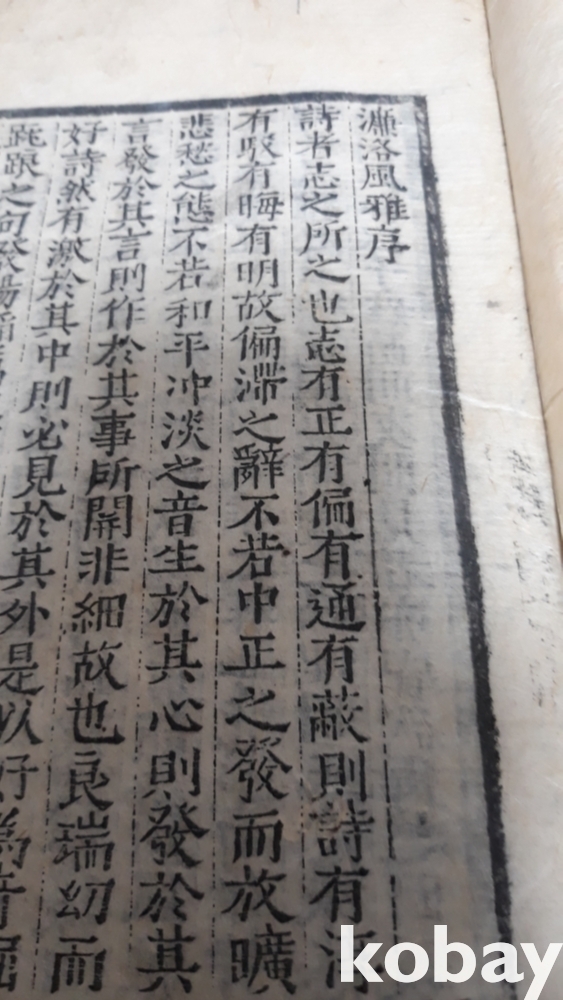 濂洛風雅序
詩者志之所之也志有正有偏有通有蔽則詩有淳
有駁有晦有明故偏滯之辭不若中正之發而放曠
悲愁之態不若和平冲淡之音生於其心則發於其
言發於其言則作於其事所開非細故也良端幼而
好詩然有激於其中則必見於其外是以好爲音
之句發
kobay